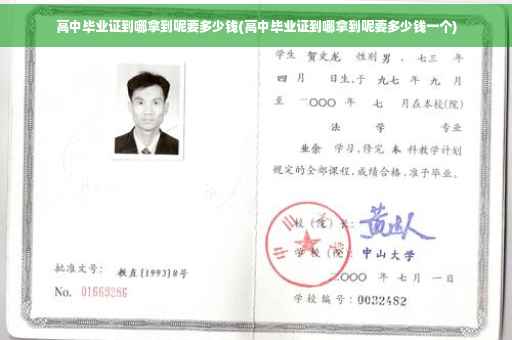 高中毕业证到哪拿到呢要多少钱(高中毕业证到哪拿到呢要多少钱一个)
学生 贺文龙 性别 男 . 七三 年
四 月 日生,于 九七 年 九 月
至 二〇〇〇 年 七 月在本校(院)
法 学 专业
业余 学习,修完 本 科教学计划
规定的全部课程,成绩合格,准予毕业。
校(院)长:
学校(院): 中山大学
二〇〇〇 年 七 月 一 日
批准文号: 教直[1993]8号
No. 01663286
学校编号: 0032482